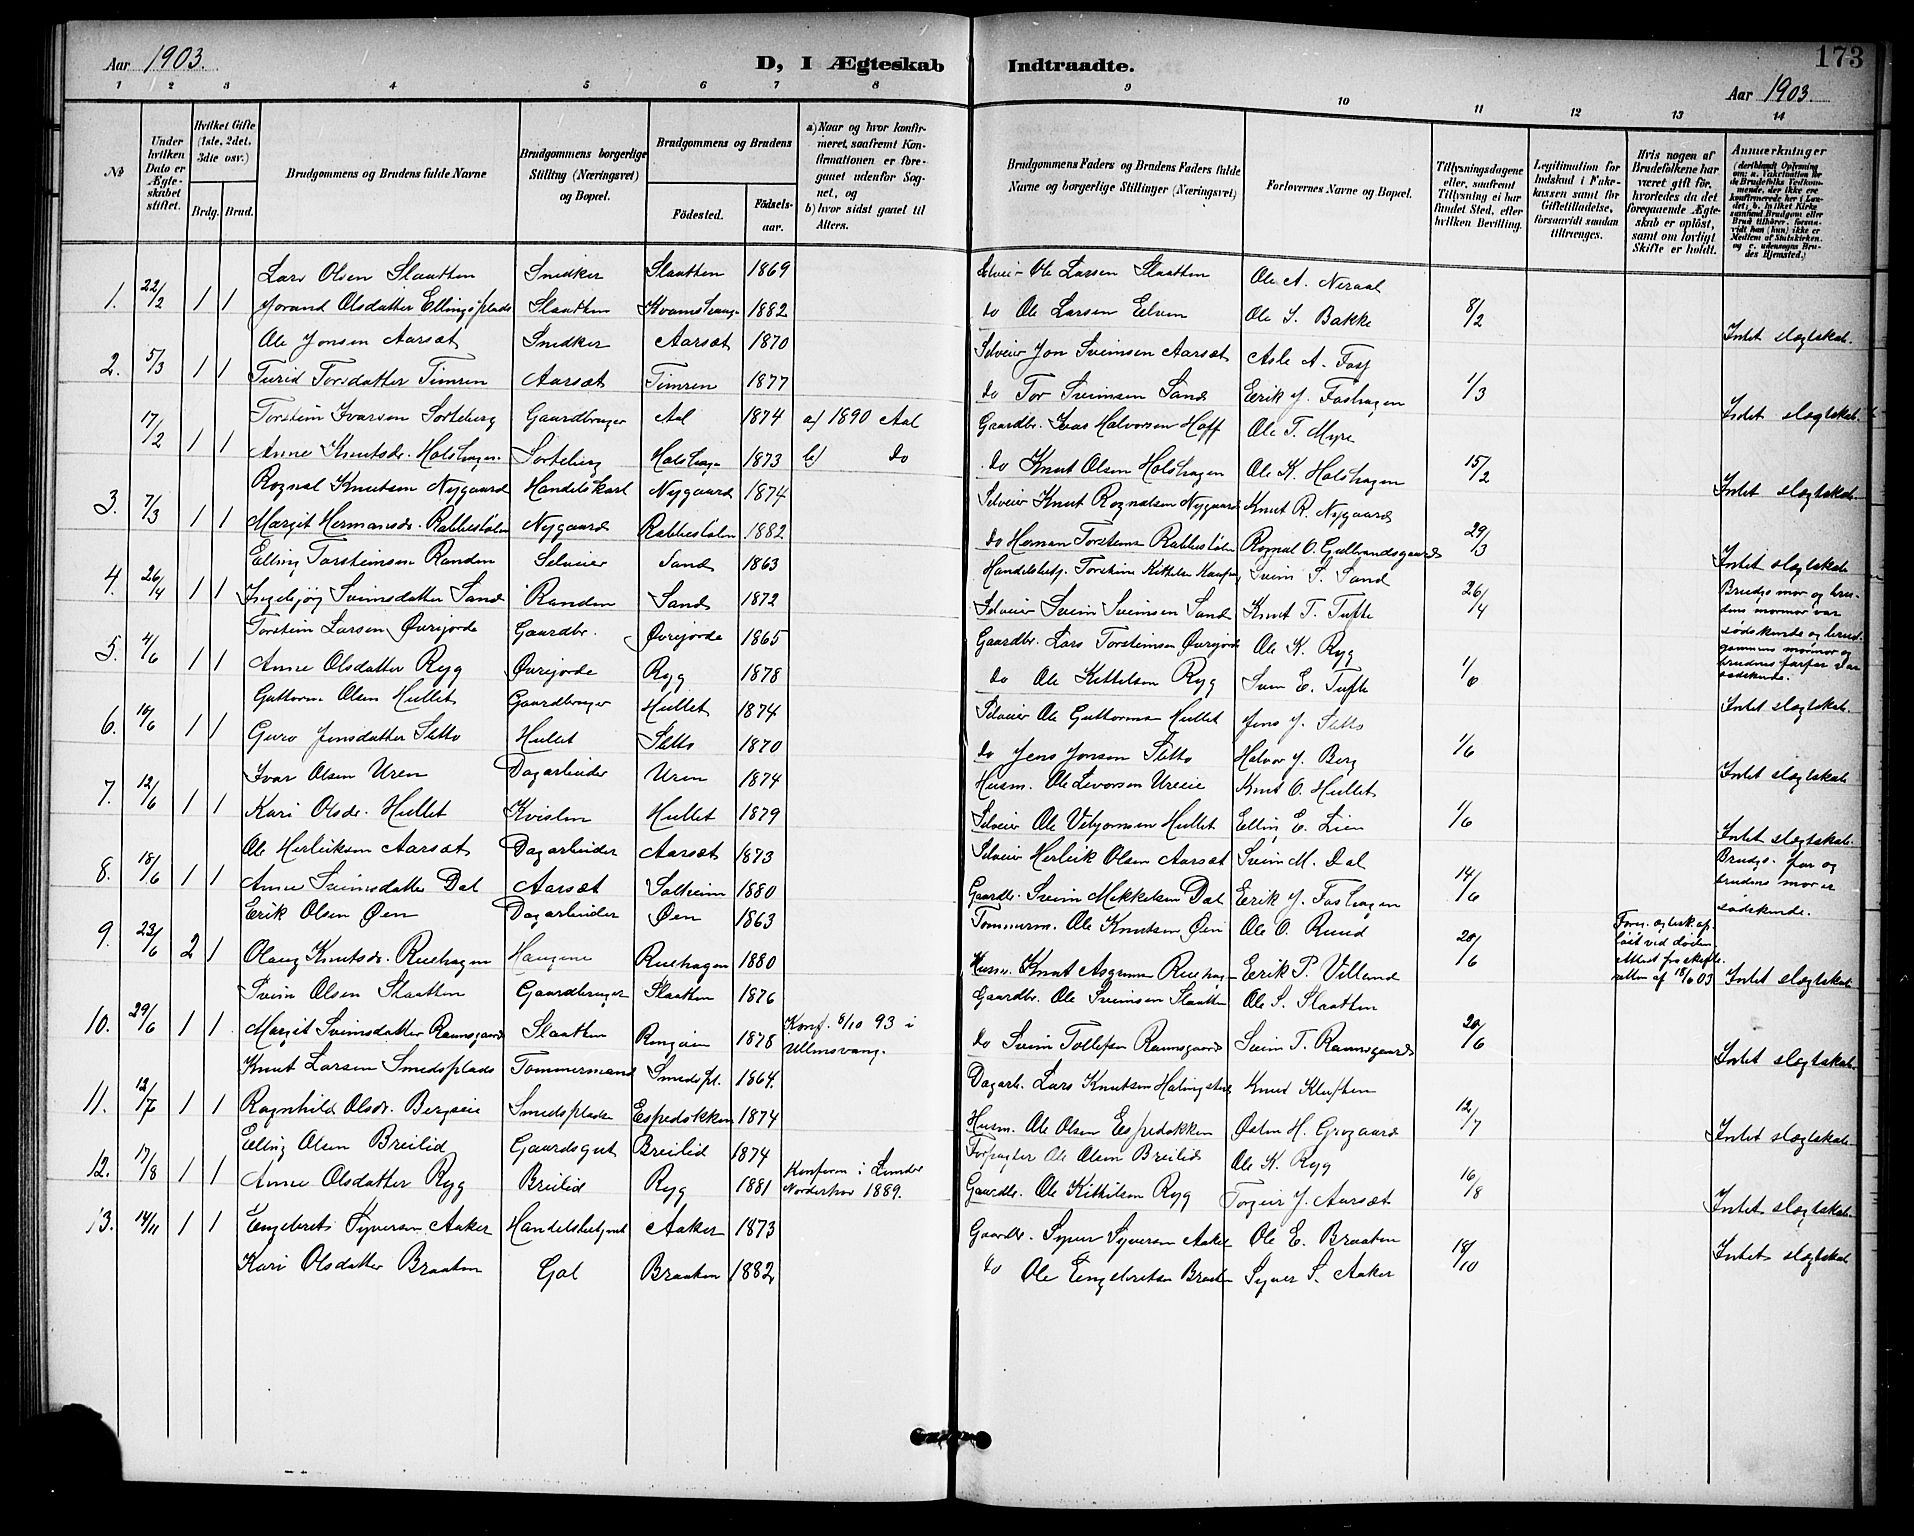 Aar 1903.
D, I Ægteskab Indtraadte.
173
Aar 1903
1 2 3 4 5 6 7 8 9 10 11 12 13 14
No
Under hvilken Dato er Ægteskabet stiftet.
Hvilket Gifte (1ste, 2det, 3die osv.)
Brdg. Brud.
Brudgommens og Brudens fulde Navne
Brudgommens borgerlige Stilling (Næringsvei) og Bopæl.
Brudgommens og Brudens
Födested.
Födselsaar.
a) Naar og hvor konfirmeret, saafremt Konfirmationen er foregaaet udenför Sognet, og
b) hvor sidst gaaet til Alters.
Brudgommens Faders og Brudens Faders fulde Navne og borgerlige Stillinger (Næringsvei)
Forlovernes Navne og Bopæl.
Tillysningsdagene eller, saafremt Tillysning ei har fundet Sted, efter hvilken Bevilling.
Legitimation for Indskud i Fattigkassen samt for Giftetilladelse, forsaavidt saadan tiltrænges.
Hvis nogen af Brudefolkene har været gift för, hvorledes da det foregaaende Ægteskab er oplöst, samt om lovligt Skifte er holdt.
Anmærkninger
Lars Olsen Slaatten Snidker Slaatten 1869 Selveier Ole Larsen Slaatten Ole A. Neraal
1. 22/2 1 1 Jorand Olsdatter Ellingsplads Slaatten Kvamshaugen 1882 do Ole Larsen Eelven Ole S. Bakke 8/2 Intet slægtskab.
Ole Jonsen Aarsæt Snidker Aarsæt 1870 Selveier Jon Sveinsen Aarsæt Asle A. Fosz
2. 5/3 1 1 Turid Torsdatter Timren Aarsæt Timren 1877 do Tor Sveinsen Sand Eerik J. Foshagen 1/3 Intet slægtskab.
17/2 Torstein Ivarsen Sorteberg Gaardbruger Aal 1874 a) 1890 Aal Gaardbr. Ivar Halvorsen Hoff Ole T. Myre
1 1 Anne Knutsdr. Holshagen Sorteberg Holshagen 1873 b) do do Knut Olsen Holshagen Ole K. Holshagen 15/2 Intet slægtskab
3. 7/3 Rognal Knutsen Nygaard Handelskarl Nygaard 1874 Selveier Knut Rognalsen Nygaard Knut R. Nygaard
1 1 Margit Hermansdr. Rabbestølen Nygaard Rabbestølen 1882 do Herman Torsteins Rabbestølen Rognal O. Gulbrandsgaard 29/3 Intet slægtskab
Elling Torsteinsen Randen Selveier Sand 1863 Handelsbetj. Torstein Kittilsen Svein S. Sand
4. 26/4 1 1 Ingebjørg Sveinsdatter Sand Randen Sand 1872 Selveier Svein Sveinsen Sand Knut T. Tufte 26/4 Brudgs mor og brudens mormor var sødskende og brudgommens mormor og brudens farfar var sødskende.
Torstein Larsen Øvrejorde Gaardbr. Øvrejorde 1865 Gaardbr. Lars Torsteinsen Øvrejorde Ole K. Ryg
5. 4/6 1 1 Anne Olsdatter Ryg Øvrejorde Ryg 1878 do Ole Kittelsen Ryg Svein E. Tufte 1/6 Intet slægtskab.
Guttorm Olsen Hullet Gaardbruger Hullet 1874 Selveier Ole Guttormsen Hullet Jens J. Sletto
6. 1 1 Guro Jensdatter Sletto Hullet Sletto 1870 do Jens Jonsen Sletto Halvor J. Berg 1/6 Intet slægtskab
Ivar Olsen Uren Dagarbeider Uren 1874 Husm. Ole Levorsen Ureie Knut O. Hullet
7. 12/6 1 1 Kari Olsdr. Hullet Kvislen Hullet 1879 Selveier Ole Vebjørnsen Hullet Elling E. Lien 1/6 Intet slægtskab.
Ole Herleiksen Aarsæt Dagarbeider Aarsæt 1873 Selveier Herleik Olsen Aarsæt Svein M. Dal
8. 18/6 1 1 Anne Sveinsdatter Dal Aarsæt Solheim 1880 Gaardbr. Svein Mekkelsen Dal Eerik J. Foshagen 14/6 Brudgs. far og brudens mor er sødskende.
Eerik Olsen Øen Dagarbeider Øen 1863 Tømmerm. Ole Knutsen Øen Ole O. Ruud
9. 23/6 2 1 Olaug Knutsdr. Ruehagen Haugene Ruehagen 1880 Husm. Knut Asgrimsen Ruehagen Eerik P. Villand 20/6 Foreg. ægtesk. opløst ved døden. Attest fra skifteretten af 18/6 03 Intet slægtskab
Svein Olsen Slaatten Gaardbruger Slaatten 1876 Gaardbr. Ole Sveinsen Slaatten Ole S. Slaatten
10. 29/6 1 1 Margit Sveinsdatter Ramsgaard Slaatten 1878 Konf. 8/10 93 i Ullensvang. do Svein Tollefsen Ramsgaard Svein T. Ramsgaard 20/6 Intet slægtskab.
Knut Larsen Smedsplads Tømmermand Smedspl. 1864. Dagarb. Lars Knutsen Knud Kluften
11. 12/7 1 1 Ragnhild Olsdr. Bergseie Smedspladsen Eespedokken 1874 Husm. Ole Olsen Eespedokken Østen H. Grøgaard 12/7 Intet slægtskab
Elling Olsen Breilid Gaardsgut Breilid 1874 Forpagter Ole Olsen Breilid Ole K. Ryg
12. 17/8 1 1 Anne Olsdatter Ryg Breilid Ryg 1881 Konfirm i Lunder Norderhov 1889. Gaardbr. Ole Kittilsen Ryg Torgeir J. Aarsæt 16/8 Intet slægtskab
13. 14/11 1 1 Engebret Syversen Aaker Handelsbetjent Aaker 1873 Gaardbr. Syver Syversen Aaker Ole E. Braaten
Kari Olsdatter Braaten Gol Braaten 1882 do Ole Engebretsen Braaten Syver S. Aaker 18/10 Intet slægtskab